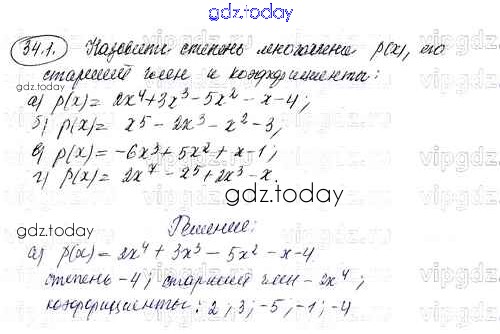 gdz.today
34.1. Назовите степень многочлена p(x), его
старший член и коэффициенты:
а) p(x) = 2x⁴+3x³-5x²-x-4;
б) p(x) = x⁵-2x³-x²-3;
в) p(x) = -6x³+5x²+x-1;
г) p(x) = 2x⁷-2⁵+2x³-x.
gdz.today
Решение:
а) p(x) = 2x⁴+3x³-5x²-x-4
степень -4; старший член - 2x⁴;
коэффициенты: 2; 3; -5; -1; -4
gdz.today